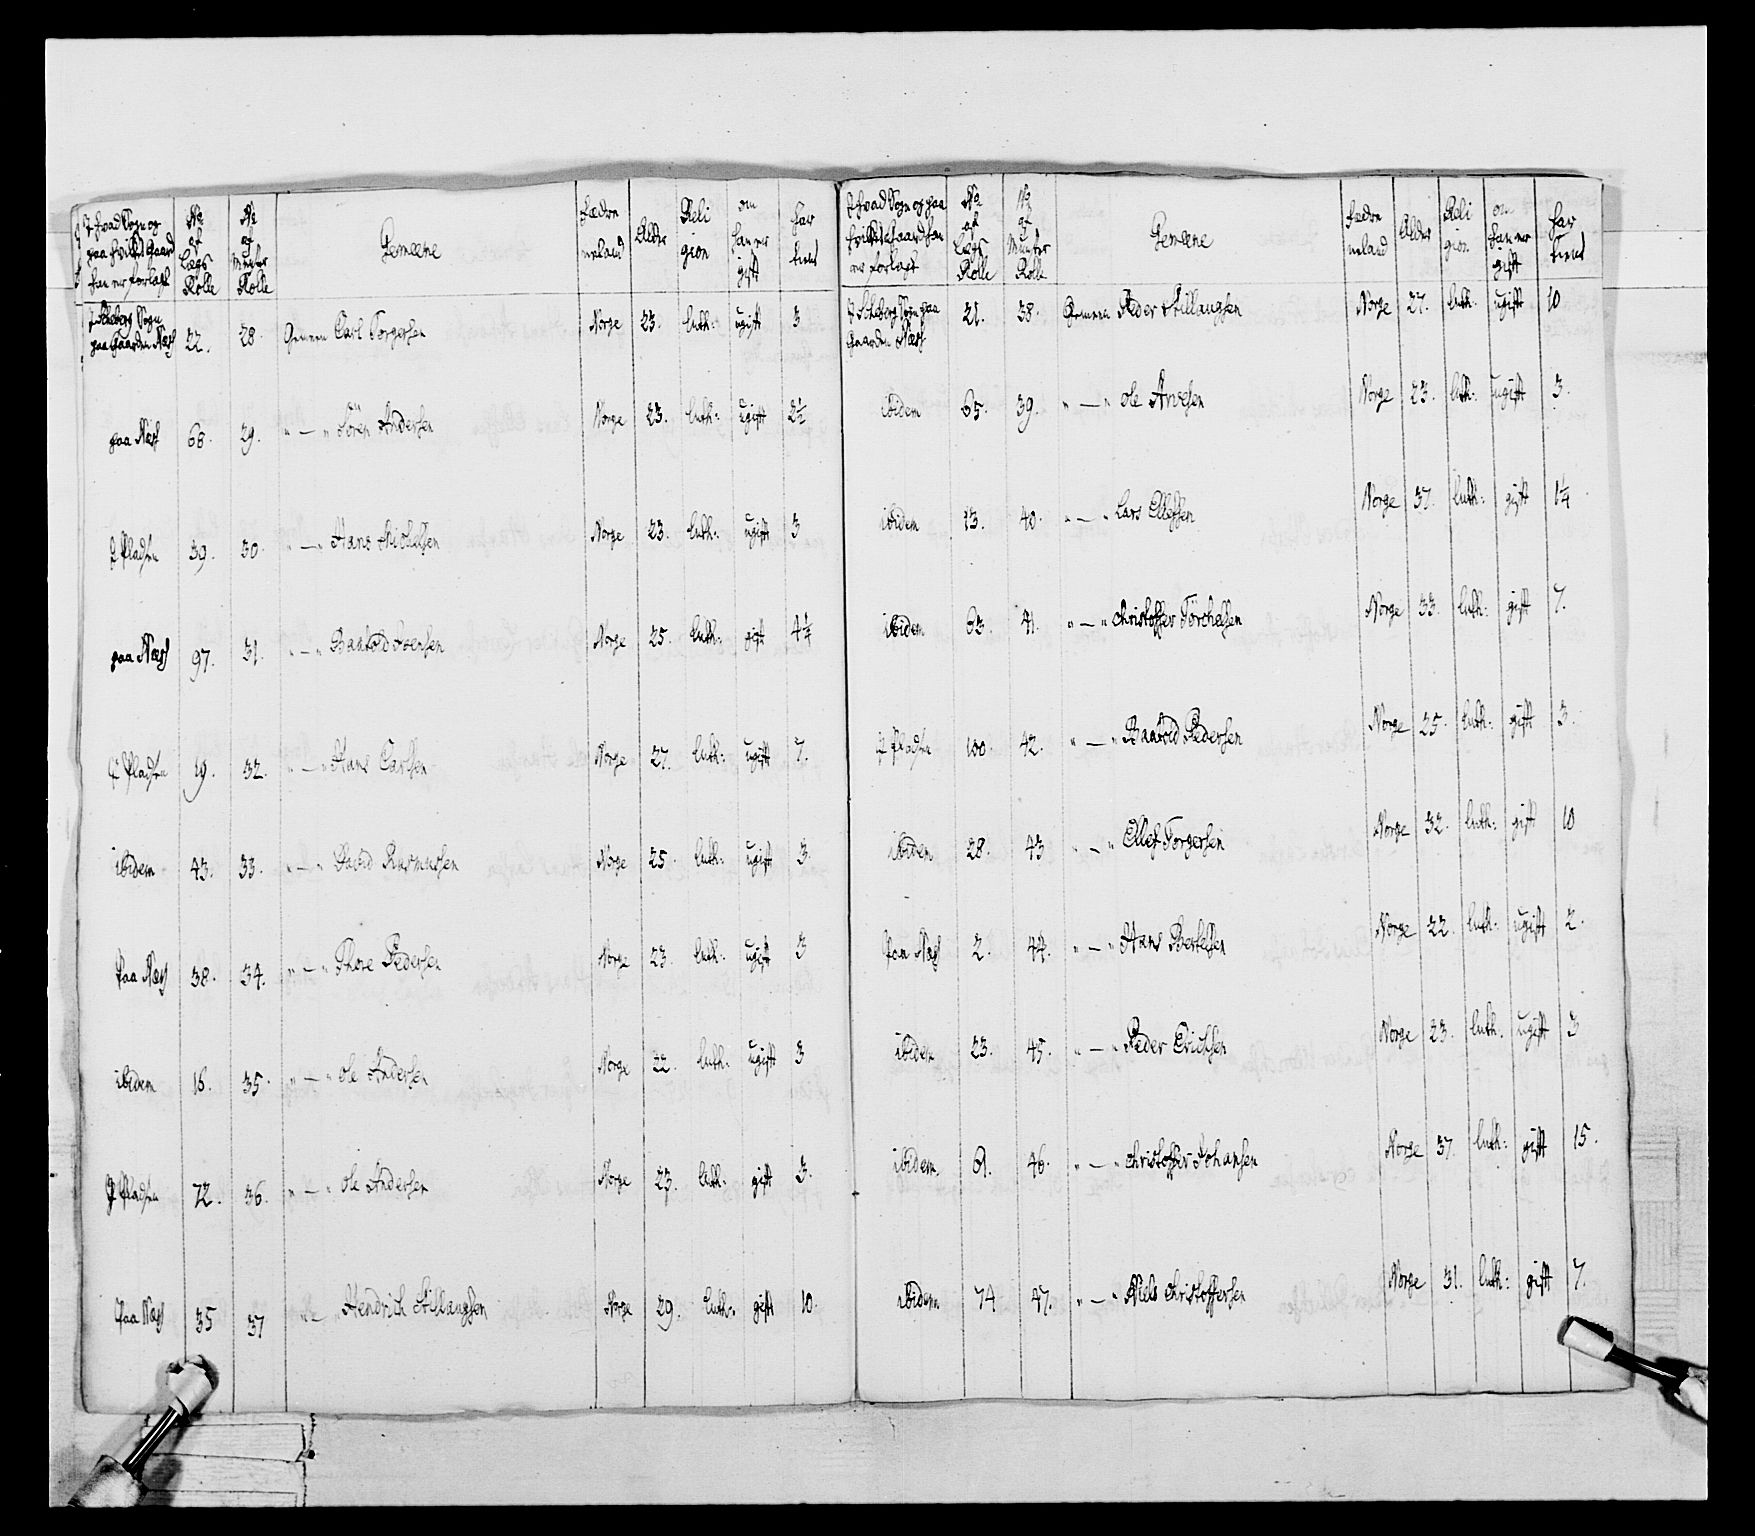 I hvad Sogn og
paa hvilket Gaard
han er forlagt
No
af
Lægs
Rolle
No
af
Munster
Rolle
Gemeene
fædre
neland
Alder
Reli
gion
om
han er
gift
har
tient
I Scheberg Sogn
paa Gaarden Næss 22. 28 Gemeen Carl Torgersen Norge 23. luth: ugift 3
paa Næss 68. 29. " — " Sören Andersen Norge 23. luth: ugift 2½
I Pladsen 39. 30. " — " Hans Michelsen Norge 23. luth: ugift 3
paa Næss 97. 31. " — " Baarod Svensen Norge 25. luth: gift 4¼
I Pladsen 19. 32. " — " Hans Carlsen Norge 27. luth: ugift 7.
ibidem 43. 33. " — " David Rasmussen Norge 25. luth: ugift 3.
Paa Næss 38. 34. " — " Thore Pedersen Norge 23. luth: ugift 3
ibidem 16. 35. " — " Ole Andersen Norge 22. luth: ugift 3
I Pladsen 72. 36. " — " Ole Andersen Norge 23. luth: gift 3.
Paa Næss 35 37 " — " Hendrich Stillaugsen Norge 29. luth: gift 10.
I hvad Sogn og paa
hvilket Gaard han
er forlagt
No
af
Lægs
Rolle
No
af
Munster
Rolle
Gemeene
fædre
neland
Alder
Reli
gion
om
han er
gift
har
tient
I Scheberg Sogn paa
Gaarden Næss 21. 38. Gemeen Peder Stillaugsen Norge 27. luth: ugift 10
ibidem 65. 39. " — " Ole Arvesen Norge 23. luth: ugift 3.
ibidem 13. 40. " — " Lars Ellefsen Norge 37. luth: gift 1¼
ibidem 63. 41. " — " Christoffer Törchelsen Norge 33. luth: gift 7.
I Pladsen 100. 42. " — " Baarod Pedersen Norge 25. luth: gift 3.
ibidem 28. 43 " — " Ellef Torgersen Norge 32. luth: gift 10
Paa Næss 2. 44. " — " Hans Bertelsen Norge 22. luth: ugift 2.
ibidem 23. 45. " — " Peder Erichsen Norge 23. luth: ugift 3
ibidem 9. 46. " — " Christoffer Johansen Norge 37. luth: gift 15.
ibidem 74 47. " — " Niels Christoffersen Norge 31. luth: gift 7.